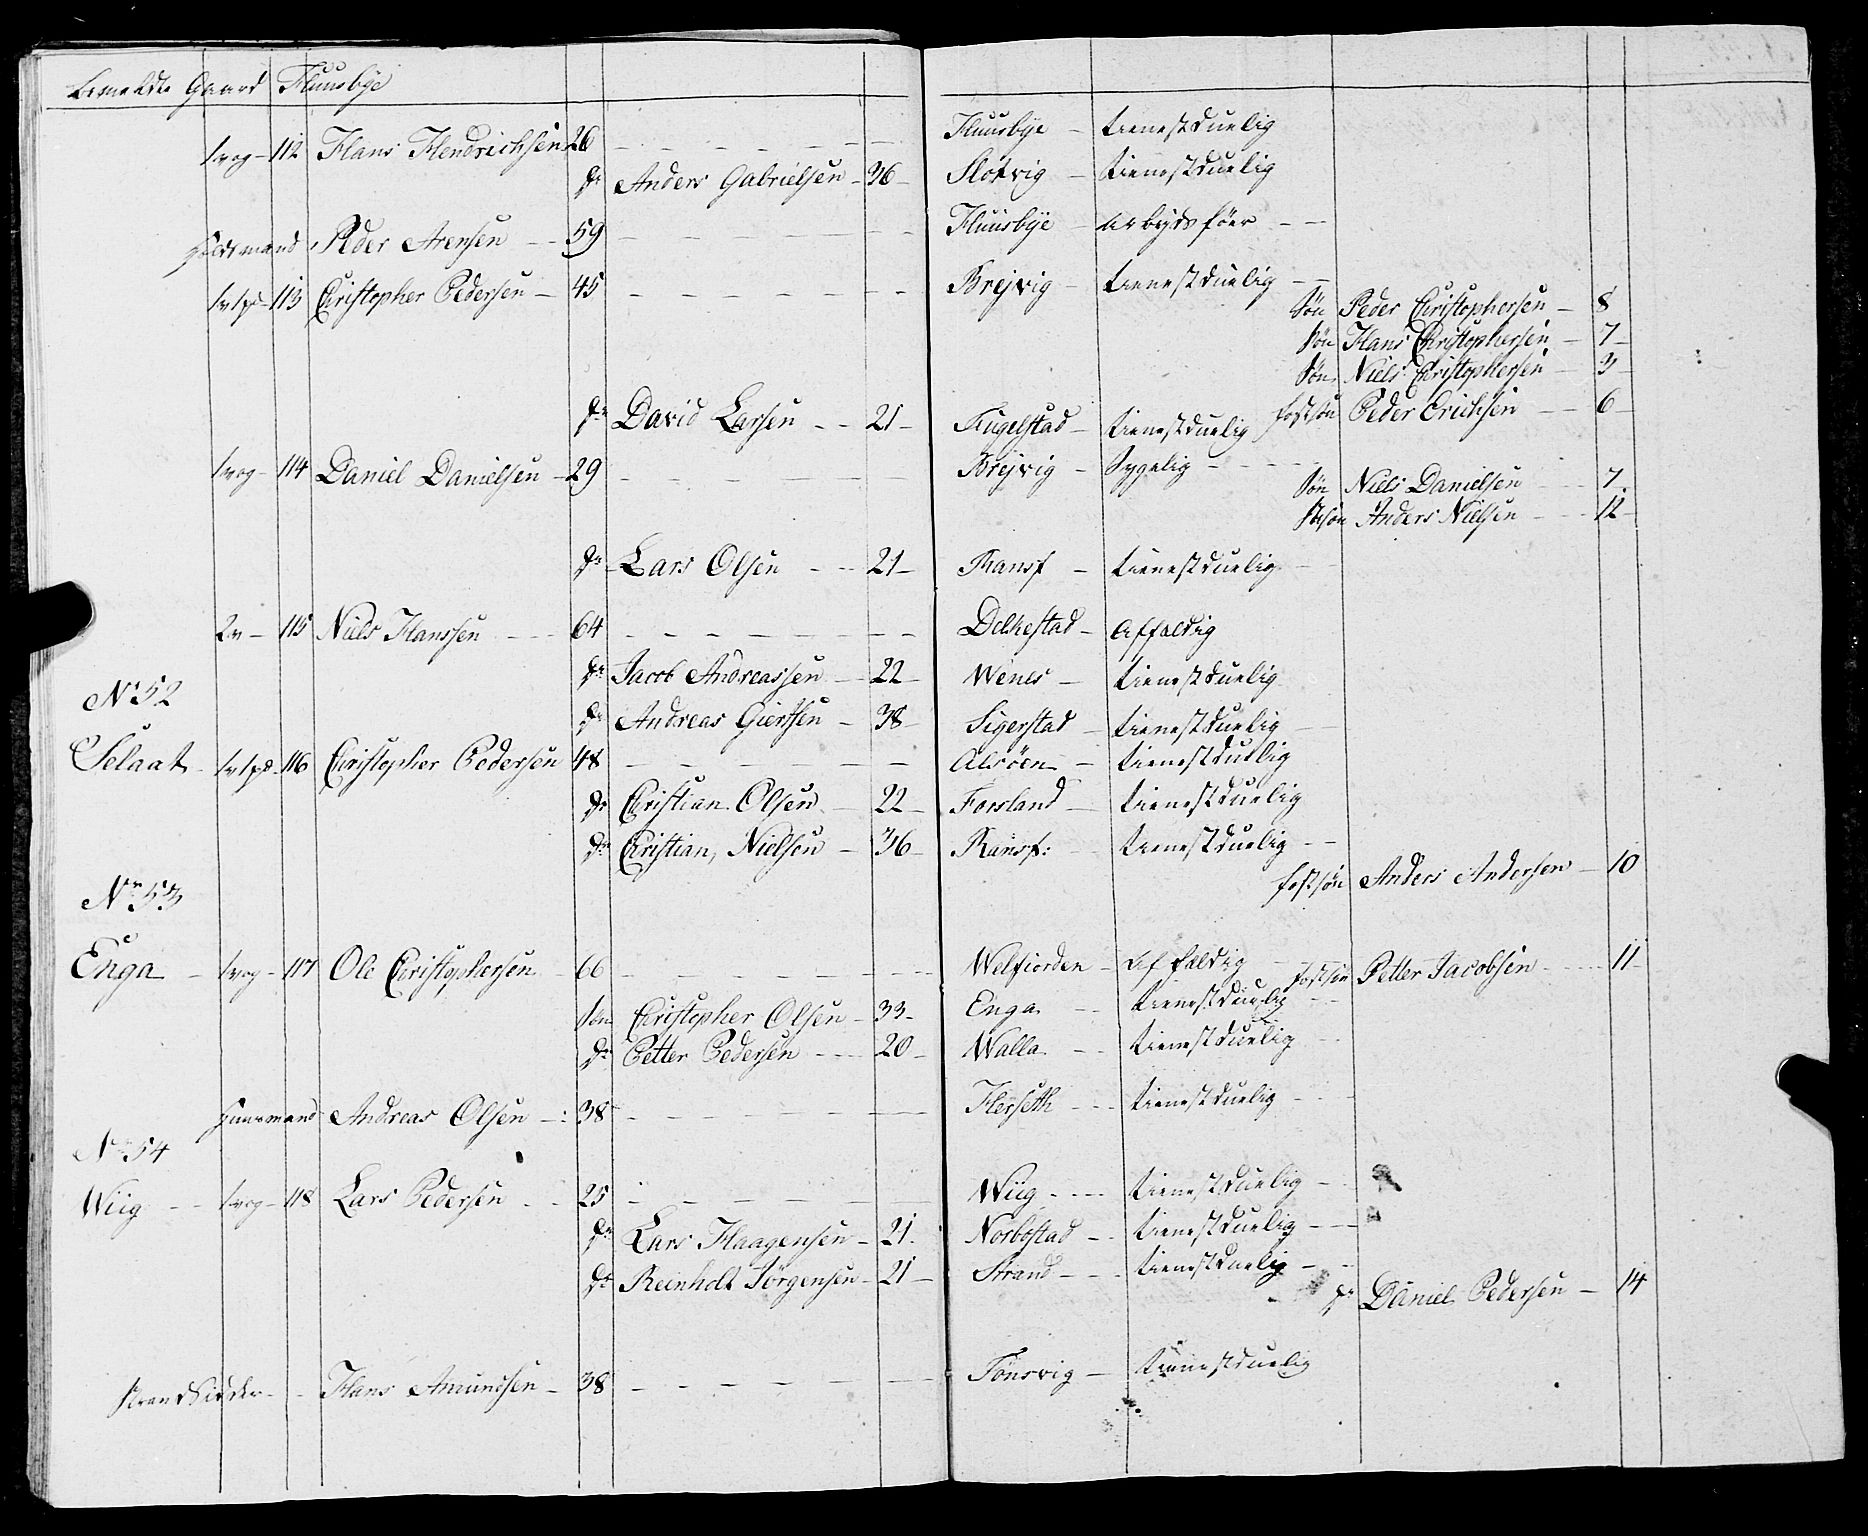 bemeldte Gaard Huusbye
1 vog – 112 Hans Hendrichsen 26 – – – – – – Huusbye – tienestduelig
dr Anders Gabrielsen – 36 – Slotvig – tienestduelig
Huusmand Peder Arensen – – 59 – – – – – – Huusbye – Arbeydsföer – –
113 Christopher Pedersen – 45 – – – – – – Brejvig – tienestduelig – –
Sön Peder Christophersen – 8
Sön Hans Christophersen – 7 –
Sön Niels Christophersen – 3 –
dr David Larsen – – 21 – Fugelstad – tienestduelig fostsön Peder Erichsen – – 6 –
1 vog – 114 Daniel Danielsen – 29 – – – – – – Brejvig – Sygelig – – – –
Sön Niels Danielsen – – 7
Stsön Anders Nielsen – – – 12 –
dr Lars Olsen – – – 21 – Ransf – tienestduelig –
2 v – 115 Niels Hanssen – – – 64 – – – – – – – Delkestad – Affældig
dr Jacob Andreassen – 22 – Wenes – tienestduelig
No 52
dr Andreas Giertsen – 38 – Sigerstad – tienestduelig –
Selaat – 116 Christopher Pedersen 48 – – – – – – Alsöen – tienestduelig
dr Christian Olsen – 22 – Forsland – tienestduelig
dr Christian Nielsen – 36 – Ransf: – tienestduelig – –
fostsön Anders Andersen – 10
No 53
Enga – 1 vog – 117 Ole Christophersen – 66 – – – – – – Welfiorden – Affældig – fostsön Petter Jacobsen – – – 11 –
Sön Christopher Olsen – 33 – Enga – – tienestduelig – –
dr Petter Pedersen – – – 20 – Walla – – tienestduelig – –
Huusmand Andreas Olsen – : 38 – – – – – – Herseth – – – tienestduelig – – –
No 54
Wiig – – 1 vog – 118 Lars Pedersen – – 25 – – – – Wiig – – – – tienestduelig – –
dr Lars Haagensen – 21. Norbostad – – tienestduelig – – –
dr Reinholt Jörgensen – 21 – Strand – – – tienestduelig – –
dr Daniel Pedersen – 14
Strandsidder – – Hans Amundsen – 38 – – – – – – – Tönsvig – tienestduelig